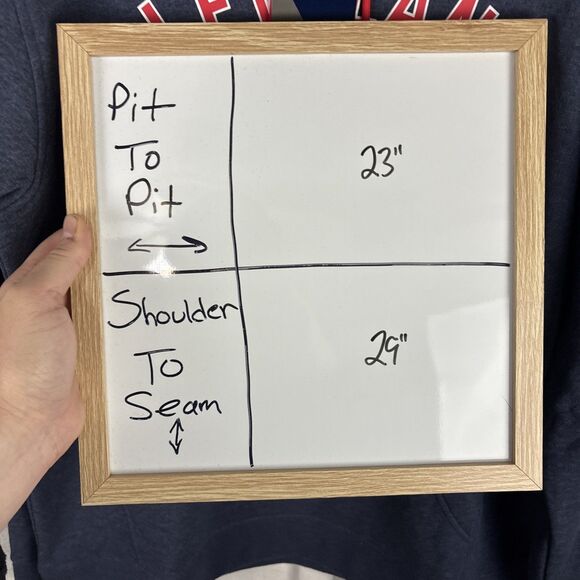 Pit
To
Pit
23"
Shoulder
To
Seam
29"